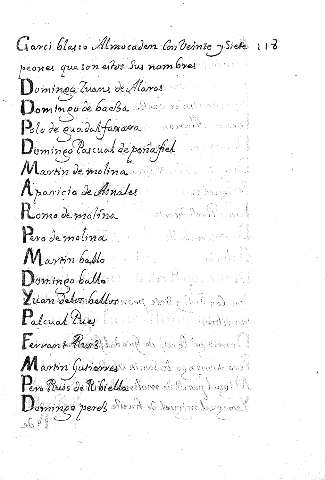 Garci blasco Almocaden Con Veinte y Siete 118
peones que son estos sus nombres
Domingo Iuans de Alaros
Domingo de baeba
Polo de guadalfaxara
Domingo Pascual de peñafiel
Martin de molina
Aparicio de Arnales
Romo de molina
Pero de molina
Martin ballo
Domingo ballo
Yuan delos bellos
Pascual Pues
Ferrant Ruis
Martin Gutierres
Pero Ruis de Ribiella
Domingo peres